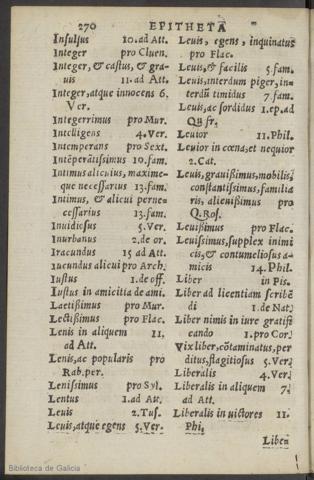 270 EPITHETA
Insulsus 10. ad Att.
Integer pro Cluen.
Integer, & castus, & gra-
uis 11. ad Att.
Integer, atque innocens 6.
Ver.
Integerrimus pro Mur.
Intelligens 4. Ver.
Intemperans pro Sext.
Intẽperãtissimus 10. fam.
Intimus alicuius, maxime-
que necessarius 13. fam.
Intimus, & alicui perne-
cessarius 13. fam.
Inuidiosus 5. Ver.
Inurbanus 2. de or.
Iracundus 15 ad Att.
Iucundus alicui pro Arch.
Iustus 1. de off.
Iustus in amicitia de ami.
Laetissimus pro Mur.
Lectissimus pro Flac.
Lenis in aliquem 11.
ad Att.
Lenis, ac popularis pro
Rab. per.
Lenissimus pro Syl.
Lentus 1. ad Att.
Leuis 2. Tus.
Leuis, atque egens 5. Ver.
Leuis, egens, inquinatus
pro Flac.
Leuis, & facilis 5. fam.
Leuis, interdum piger, in-
terdũ timidus 7. fam.
Leuis, ac sordidus 1. ep. ad
Qu. fr.
Leuior 11. Phil.
Leuior in cœna, et nequior
2. Cat.
Leuis, grauissimus, mobilis,
constantissimus, familia
ris, alienissimus pro
Q. Ros.
Leuissimus pro Flac.
Leuissimus, supplex inimi
cis, & contumeliosus a-
micis 14. Phil.
Liber in Pis.
Liber ad licentiam scribẽ
di 1. de Nat.
Liber nimis in iure gratifi
cando 1. pro Cor.
Vix liber, cõtaminatus, per
ditus, flagitiosus 5. Ver.
Liberalis 4. Ver.
Liberalis in aliquem 7.
ad Att.
Liberalis in uictores 11.
Phi.
Liben
Biblioteca de Galicia